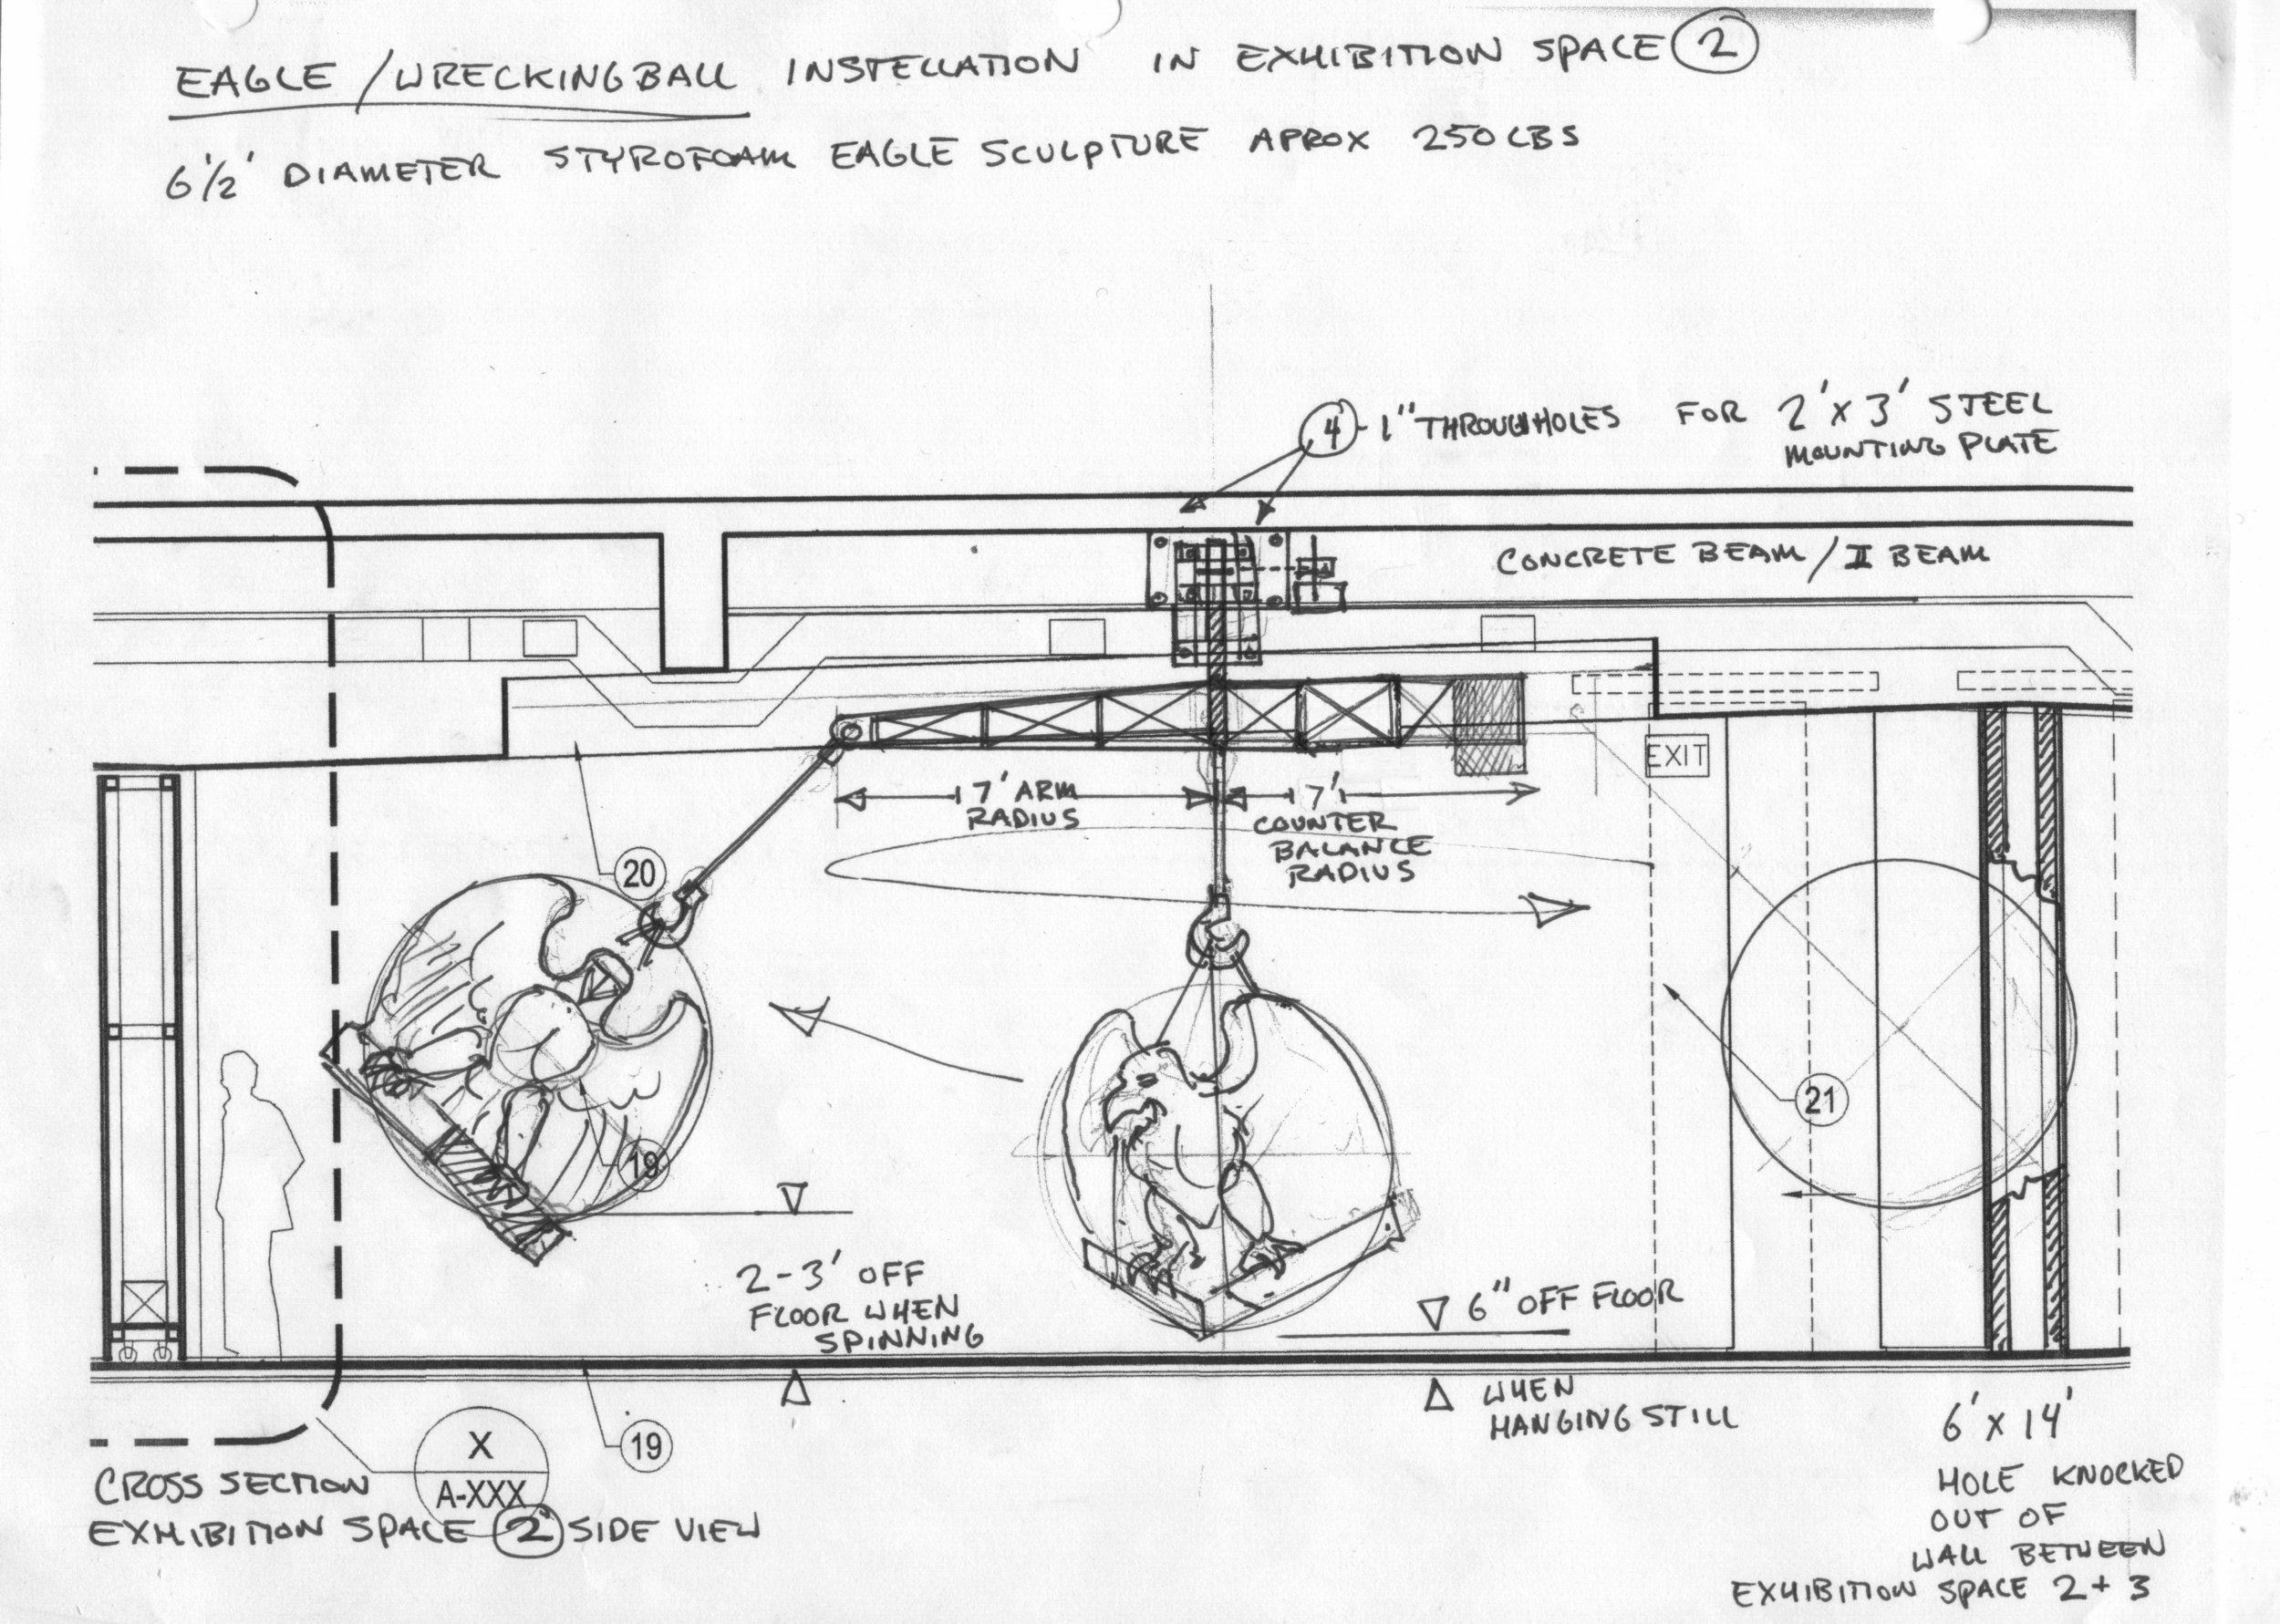 EAGLE / WRECKING BALL INSTELLATION IN EXHIBITION SPACE 2
6 1/2' DIAMETER STYROFOAM EAGLE SCULPTURE APROX 250 LBS
4 - 1" THROUGHHOLES FOR 2' X 3' STEEL
MOUNTING PLATE
CONCRETE BEAM / II BEAM
EXIT
7' ARM
RADIUS
7'
COUNTER
BALANCE
RADIUS
20
21
19
2-3' OFF
FLOOR WHEN
SPINNING
6" OFF FLOOR
WHEN
HANGING STILL
19
X
A-XXX
CROSS SECTION
EXHIBITION SPACE 2 SIDE VIEW
6' X 14'
HOLE KNOCKED
OUT OF
WALL BETWEEN
EXHIBITION SPACE 2 + 3